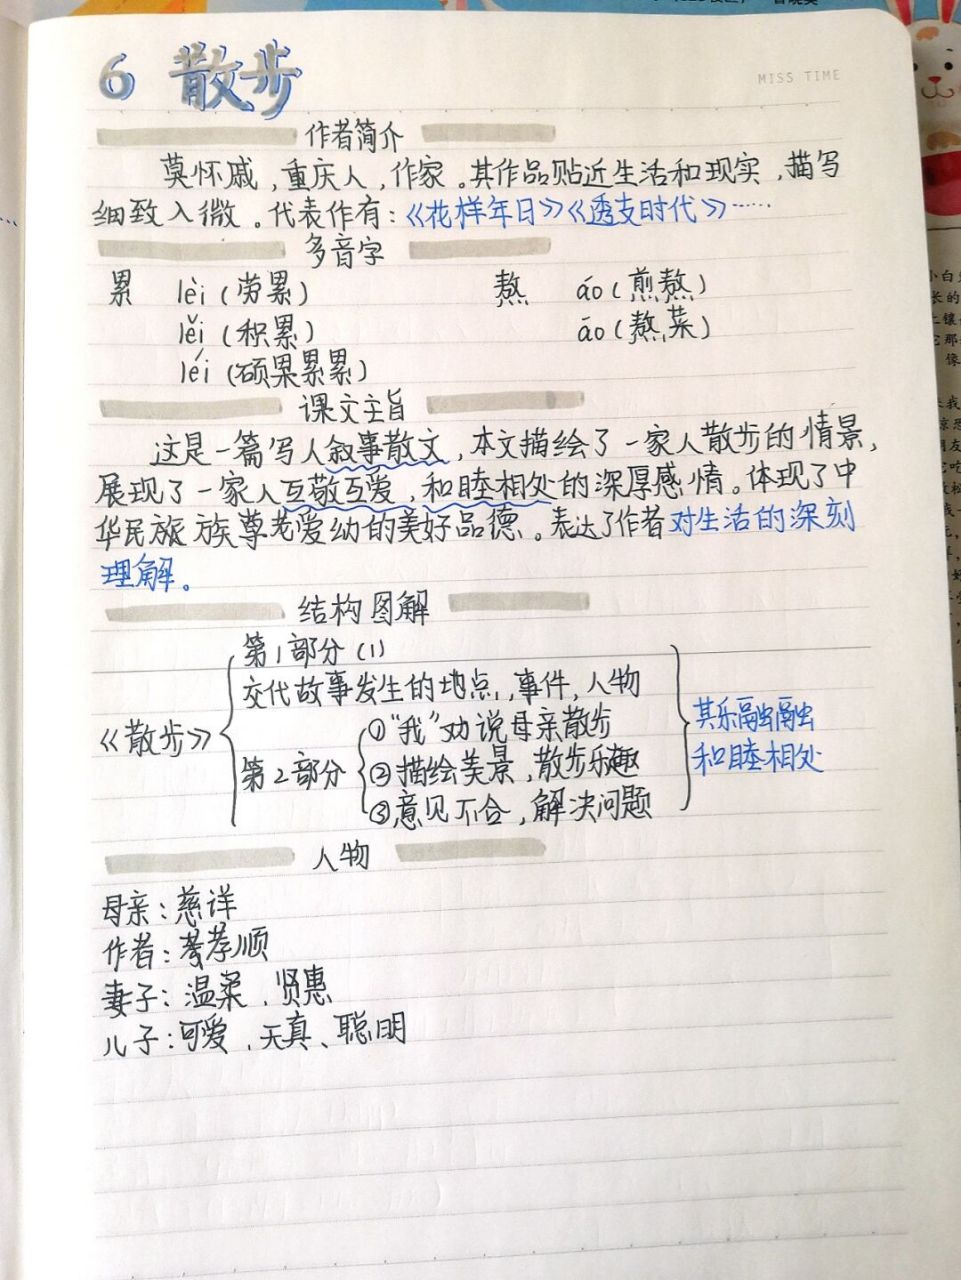 6 散步
MISS TIME
作者简介
莫怀戚,重庆人,作家。其作品贴近生活和现实,描写
细致入微。代表作有:《花样年日》《透支时代》……
多音字
累 lèi(劳累) 熬 áo(煎熬)
lěi(积累) āo(熬菜)
léi(硕果累累)
课文主旨
这是一篇写人叙事散文,本文描绘了一家人散步的情景,
展现了一家人互敬互爱,和睦相处的深厚感情。体现了中
华民族族尊老爱幼的美好品德。表达了作者对生活的深刻
理解。
结构图解
第1部分(1)
交代故事发生的地点,事件,人物
《散步》
第2部分
①"我"劝说母亲散步
②描绘美景,散步乐趣
③意见不合,解决问题
其乐融融
和睦相处
人物
母亲:慈详
作者:孝顺
妻子:温柔、贤惠
儿子:可爱、天真、聪明